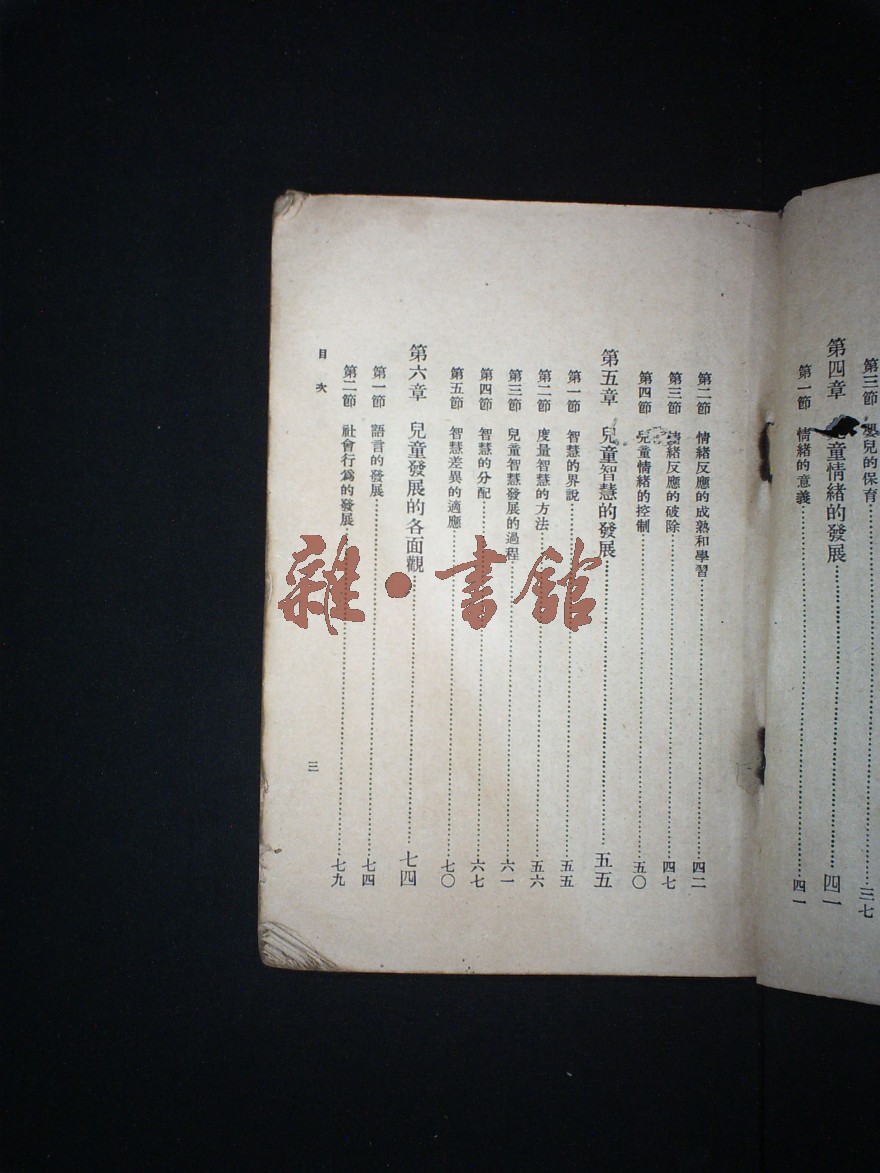 第三節　嬰兒的保育……三七
第四章　兒童情緒的發展……四一
第一節　情緒的意義……四一
第二節　情緒反應的成熟和學習……四二
第三節　情緒反應的破除……四七
第四節　兒童情緒的控制……五〇
第五章　兒童智慧的發展……五五
第一節　智慧的界說……五五
第二節　度量智慧的方法……五六
第三節　兒童智慧發展的過程……六一
第四節　智慧的分配……六七
第五節　智慧差異的適應……七〇
第六章　兒童發展的各面觀……七四
第一節　語言的發展……七四
第二節　社會行爲的發展……七九
目次
三
雜·書館